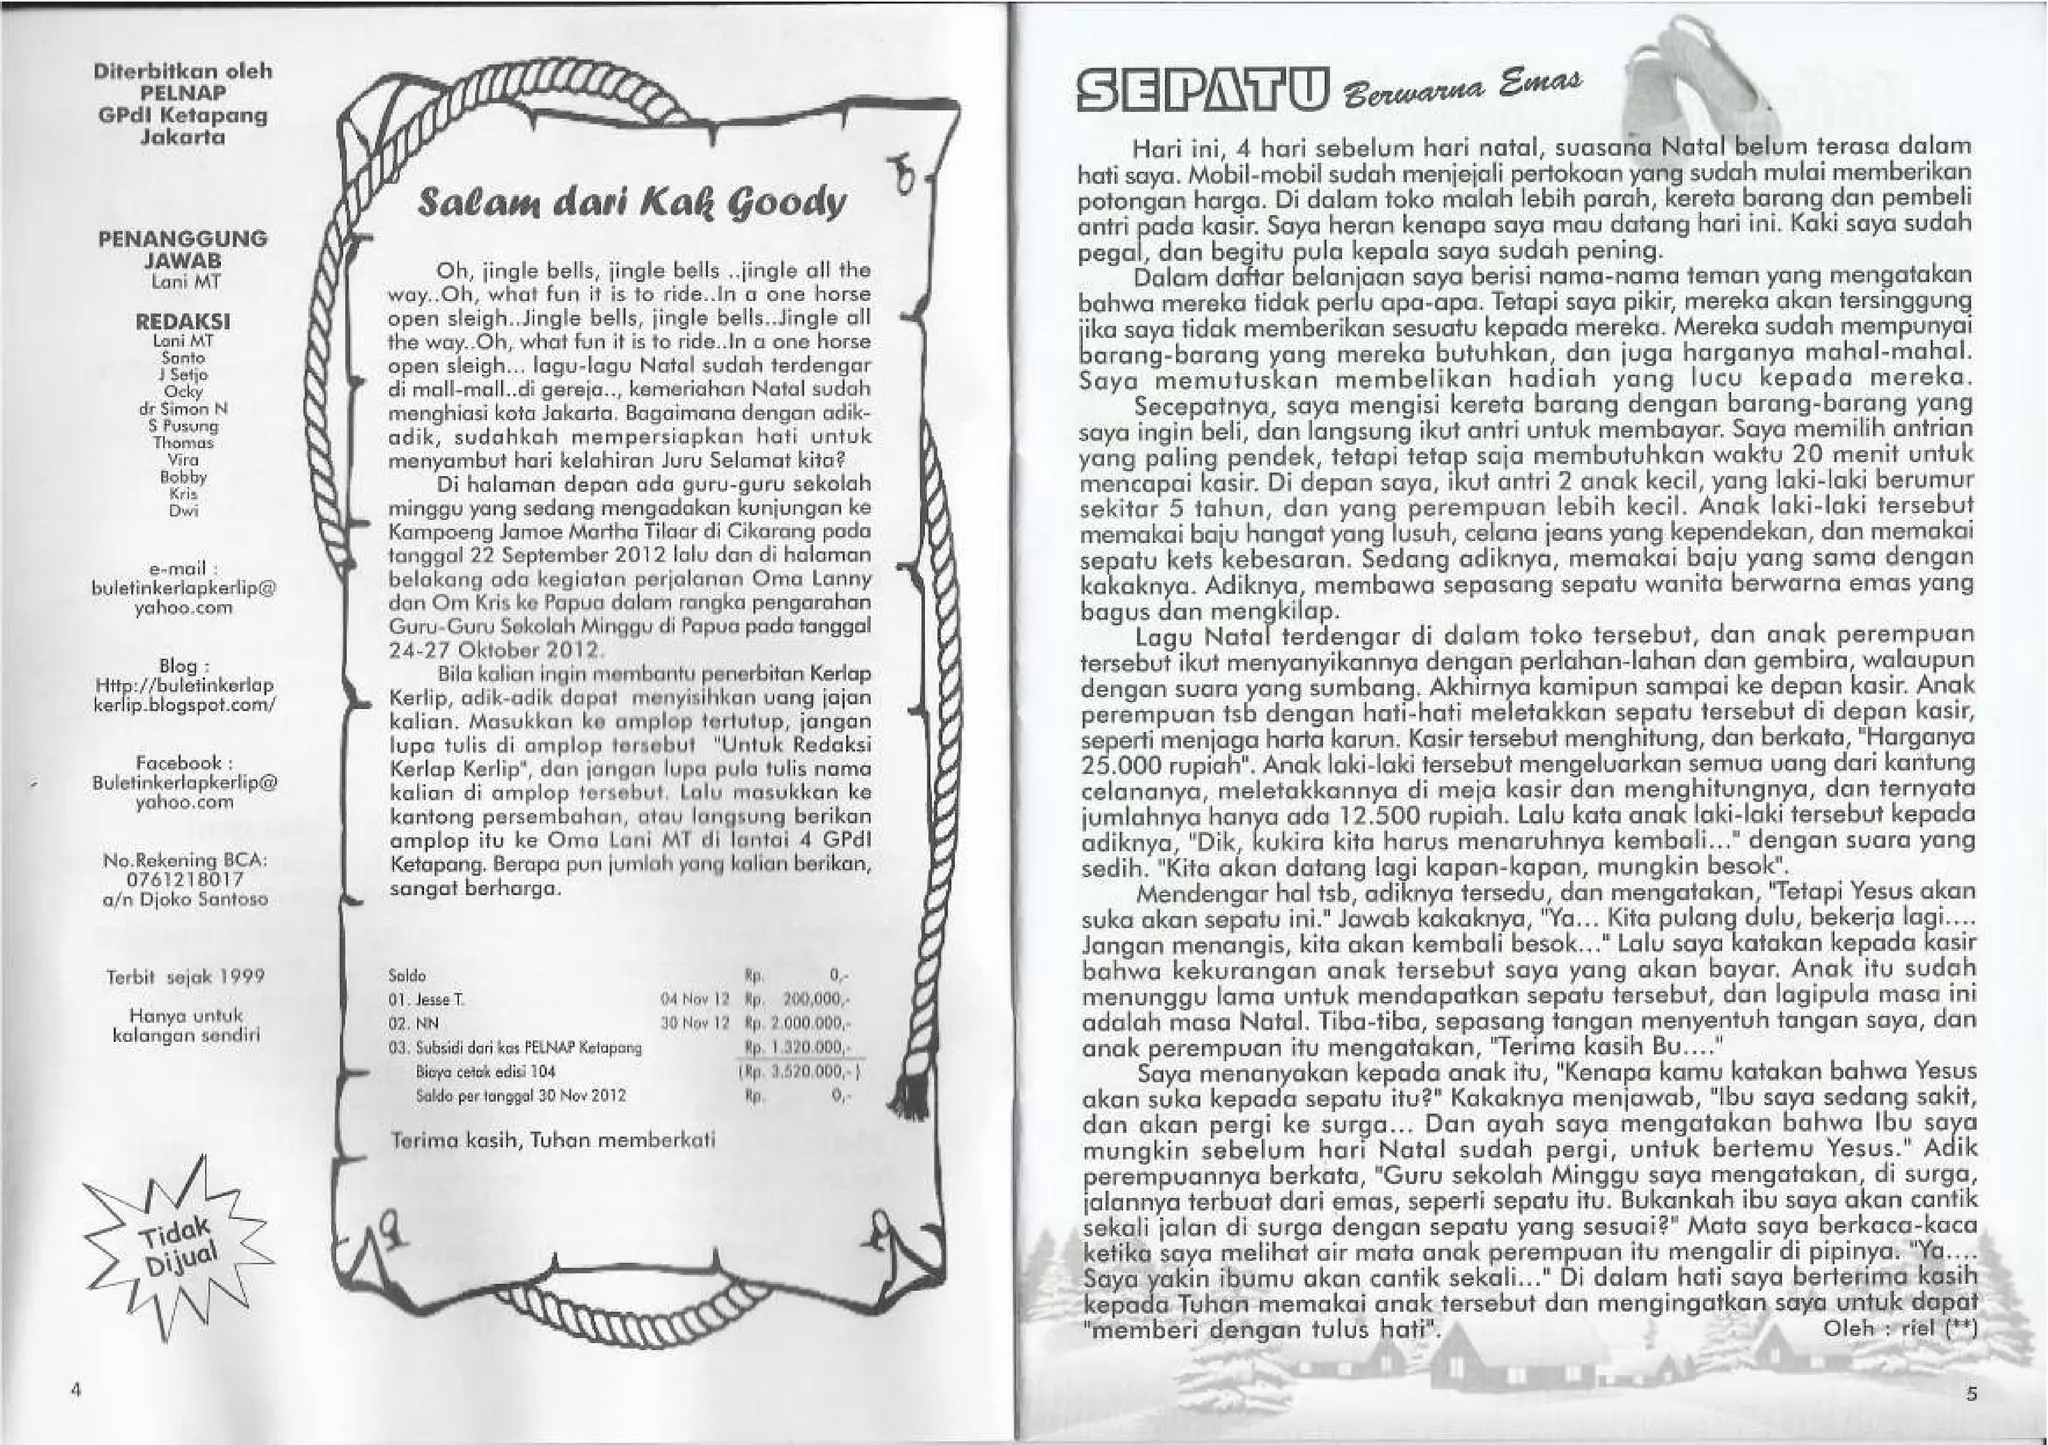 Diterbitkan oleh
PELNAP
GPdI Ketapang
Jakarta
PENANGGUNG
JAWAB
Lani MT
REDAKSI
Lani MT
Santo
J Setjo
Ocky
dr Simon N
S Pusung
Thomas
Vira
Bobby
Kris
Dwi
e-mail :
buletinkerlapkerlip@
yahoo.com
Blog :
Http://buletinkerlap
kerlip.blogspot.com/
Facebook :
Buletinkerlapkerlip@
yahoo.com
No.Rekening BCA:
0761218017
a/n Djoko Santoso
Terbit sejak 1999
Hanya untuk
kalangan sendiri
Tidak
Dijual
4
Salam dari Kak Goody
Oh, jingle bells, jingle bells ..jingle all the
way..Oh, what fun it is to ride..In a one horse
open sleigh..Jingle bells, jingle bells..Jingle all
the way..Oh, what fun it is to ride..In a one horse
open sleigh... lagu-lagu Natal sudah terdengar
di mall-mall..di gereja.., kemeriahan Natal sudah
menghiasi kota Jakarta. Bagaimana dengan adik-
adik, sudahkah mempersiapkan hati untuk
menyambut hari kelahiran Juru Selamat kita?
Di halaman depan ada guru-guru sekolah
minggu yang sedang mengadakan kunjungan ke
Kampoeng Jamoe Martha Tilaar di Cikarang pada
tanggal 22 September 2012 lalu dan di halaman
belakang ada kegiatan perjalanan Oma Lanny
dan Om Kris ke Papua dalam rangka pengarahan
Guru-Guru Sekolah Minggu di Papua pada tanggal
24-27 Oktober 2012.
Bila kalian ingin membantu penerbitan Kerlap
Kerlip, adik-adik dapat menyisihkan uang jajan
kalian. Masukkan ke amplop tertutup, jangan
lupa tulis di amplop tersebut "Untuk Redaksi
Kerlap Kerlip", dan jangan lupa pula tulis nama
kalian di amplop tersebut. Lalu masukkan ke
kantong persembahan, atau langsung berikan
amplop itu ke Oma Lani MT di lantai 4 GPdI
Ketapang. Berapa pun jumlah yang kalian berikan,
sangat berharga.
Saldo Rp. 0,-
01. Jesse T. 04 Nov 12 Rp. 200,000,-
02. NN 30 Nov 12 Rp. 2.000.000,-
03. Subsidi dari kas PELNAP Ketapang Rp. 1.320.000,-
Biaya cetak edisi 104 (Rp. 3.520.000,-)
Saldo per tanggal 30 Nov 2012 Rp. 0,-
Terima kasih, Tuhan memberkati
SEPATU Berwarna Emas
Hari ini, 4 hari sebelum hari natal, suasana Natal belum terasa dalam
hati saya. Mobil-mobil sudah menjejali pertokoan yang sudah mulai memberikan
potongan harga. Di dalam toko malah lebih parah, kereta barang dan pembeli
antri pada kasir. Saya heran kenapa saya mau datang hari ini. Kaki saya sudah
pegal, dan begitu pula kepala saya sudah pening.
Dalam daftar belanjaan saya berisi nama-nama teman yang mengatakan
bahwa mereka tidak perlu apa-apa. Tetapi saya pikir, mereka akan tersinggung
jika saya tidak memberikan sesuatu kepada mereka. Mereka sudah mempunyai
barang-barang yang mereka butuhkan, dan juga harganya mahal-mahal.
Saya memutuskan membelikan hadiah yang lucu kepada mereka.
Secepatnya, saya mengisi kereta barang dengan barang-barang yang
saya ingin beli, dan langsung ikut antri untuk membayar. Saya memilih antrian
yang paling pendek, tetapi tetap saja membutuhkan waktu 20 menit untuk
mencapai kasir. Di depan saya, ikut antri 2 anak kecil, yang laki-laki berumur
sekitar 5 tahun, dan yang perempuan lebih kecil. Anak laki-laki tersebut
memakai baju hangat yang lusuh, celana jeans yang kependekan, dan memakai
sepatu kets kebesaran. Sedang adiknya, memakai baju yang sama dengan
kakaknya. Adiknya, membawa sepasang sepatu wanita berwarna emas yang
bagus dan mengkilap.
Lagu Natal terdengar di dalam toko tersebut, dan anak perempuan
tersebut ikut menyanyikannya dengan perlahan-lahan dan gembira, walaupun
dengan suara yang sumbang. Akhirnya kamipun sampai ke depan kasir. Anak
perempuan tsb dengan hati-hati meletakkan sepatu tersebut di depan kasir,
seperti menjaga harta karun. Kasir tersebut menghitung, dan berkata, "Harganya
25.000 rupiah". Anak laki-laki tersebut mengeluarkan semua uang dari kantung
celananya, meletakkannya di meja kasir dan menghitungnya, dan ternyata
jumlahnya hanya ada 12.500 rupiah. Lalu kata anak laki-laki tersebut kepada
adiknya, "Dik, kukira kita harus menaruhnya kembali..." dengan suara yang
sedih. "Kita akan datang lagi kapan-kapan, mungkin besok".
Mendengar hal tsb, adiknya tersedu, dan mengatakan, "Tetapi Yesus akan
suka akan sepatu ini." Jawab kakaknya, "Ya... Kita pulang dulu, bekerja lagi....
Jangan menangis, kita akan kembali besok..." Lalu saya katakan kepada kasir
bahwa kekurangan anak tersebut saya yang akan bayar. Anak itu sudah
menunggu lama untuk mendapatkan sepatu tersebut, dan lagipula masa ini
adalah masa Natal. Tiba-tiba, sepasang tangan menyentuh tangan saya, dan
anak perempuan itu mengatakan, "Terima kasih Bu...."
Saya menanyakan kepada anak itu, "Kenapa kamu katakan bahwa Yesus
akan suka kepada sepatu itu?" Kakaknya menjawab, "Ibu saya sedang sakit,
dan akan pergi ke surga... Dan ayah saya mengatakan bahwa Ibu saya
mungkin sebelum hari Natal sudah pergi, untuk bertemu Yesus." Adik
perempuannya berkata, "Guru sekolah Minggu saya mengatakan, di surga,
jalannya terbuat dari emas, seperti sepatu itu. Bukankah ibu saya akan cantik
sekali jalan di surga dengan sepatu yang sesuai?" Mata saya berkaca-kaca
ketika saya melihat air mata anak perempuan itu mengalir di pipinya. "Ya....
Saya yakin ibumu akan cantik sekali..." Di dalam hati saya berterima kasih
kepada Tuhan memakai anak tersebut dan mengingatkan saya untuk dapat
"memberi dengan tulus hati".
Oleh : riel (**)
5